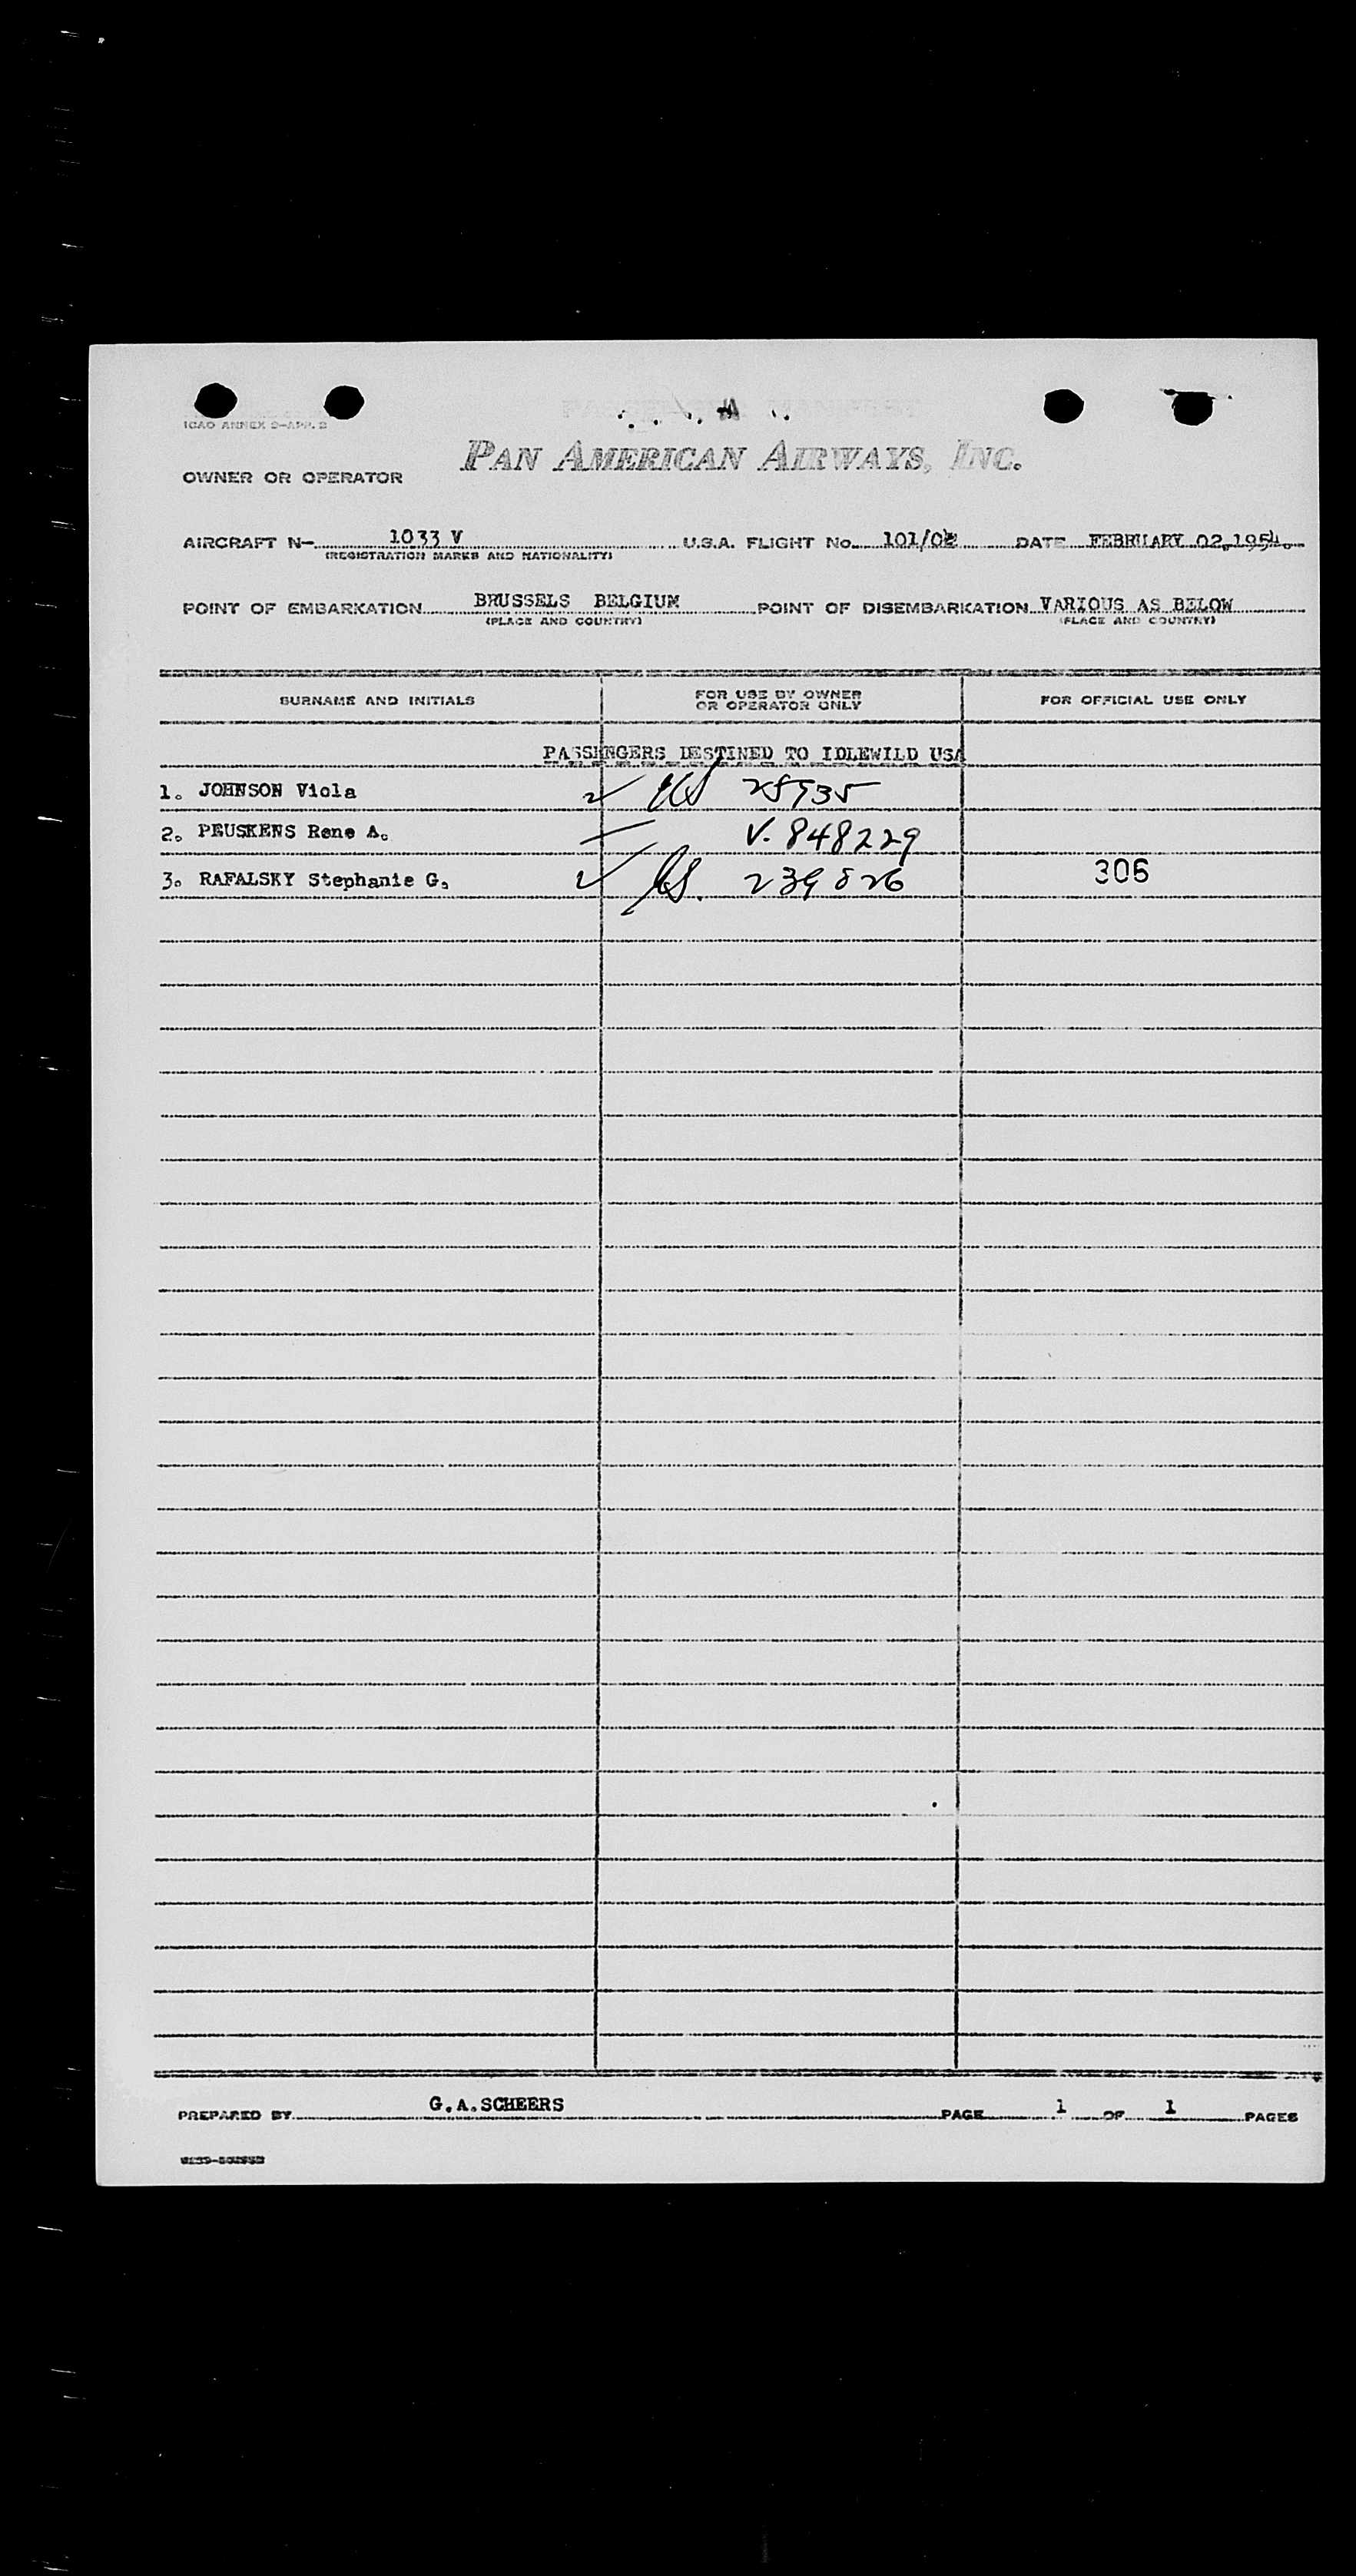 ICAO ANNEX 9-APP. 2
PAN AMERICAN AIRWAYS, INC.
OWNER OR OPERATOR
AIRCRAFT N- 1033 V U.S.A. FLIGHT No. 101/02 DATE FEBRUARY 02,1954.
(REGISTRATION MARKS AND NATIONALITY)
POINT OF EMBARKATION BRUSSELS BELGIUM POINT OF DISEMBARKATION VARIOUS AS BELOW
(PLACE AND COUNTRY) (PLACE AND COUNTRY)
SURNAME AND INITIALS FOR USE BY OWNER OR OPERATOR ONLY FOR OFFICIAL USE ONLY
PASSENGERS DESTINED TO IDLEWILD USA
1. JOHNSON Viola ✓ US
2. PEUSKENS Rene A. V. 848229
3. RAFALSKY Stephanie G. ✓ US. 239826 306
PREPARED BY G.A.SCHEERS PAGE 1 OF 1 PAGES